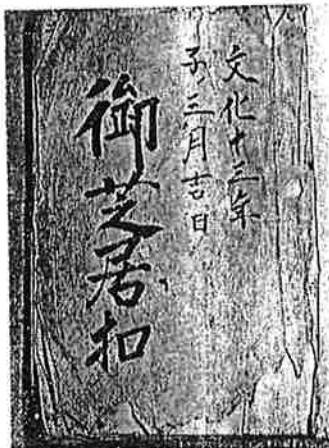 文化十三年
子三月吉日
御芝居扣